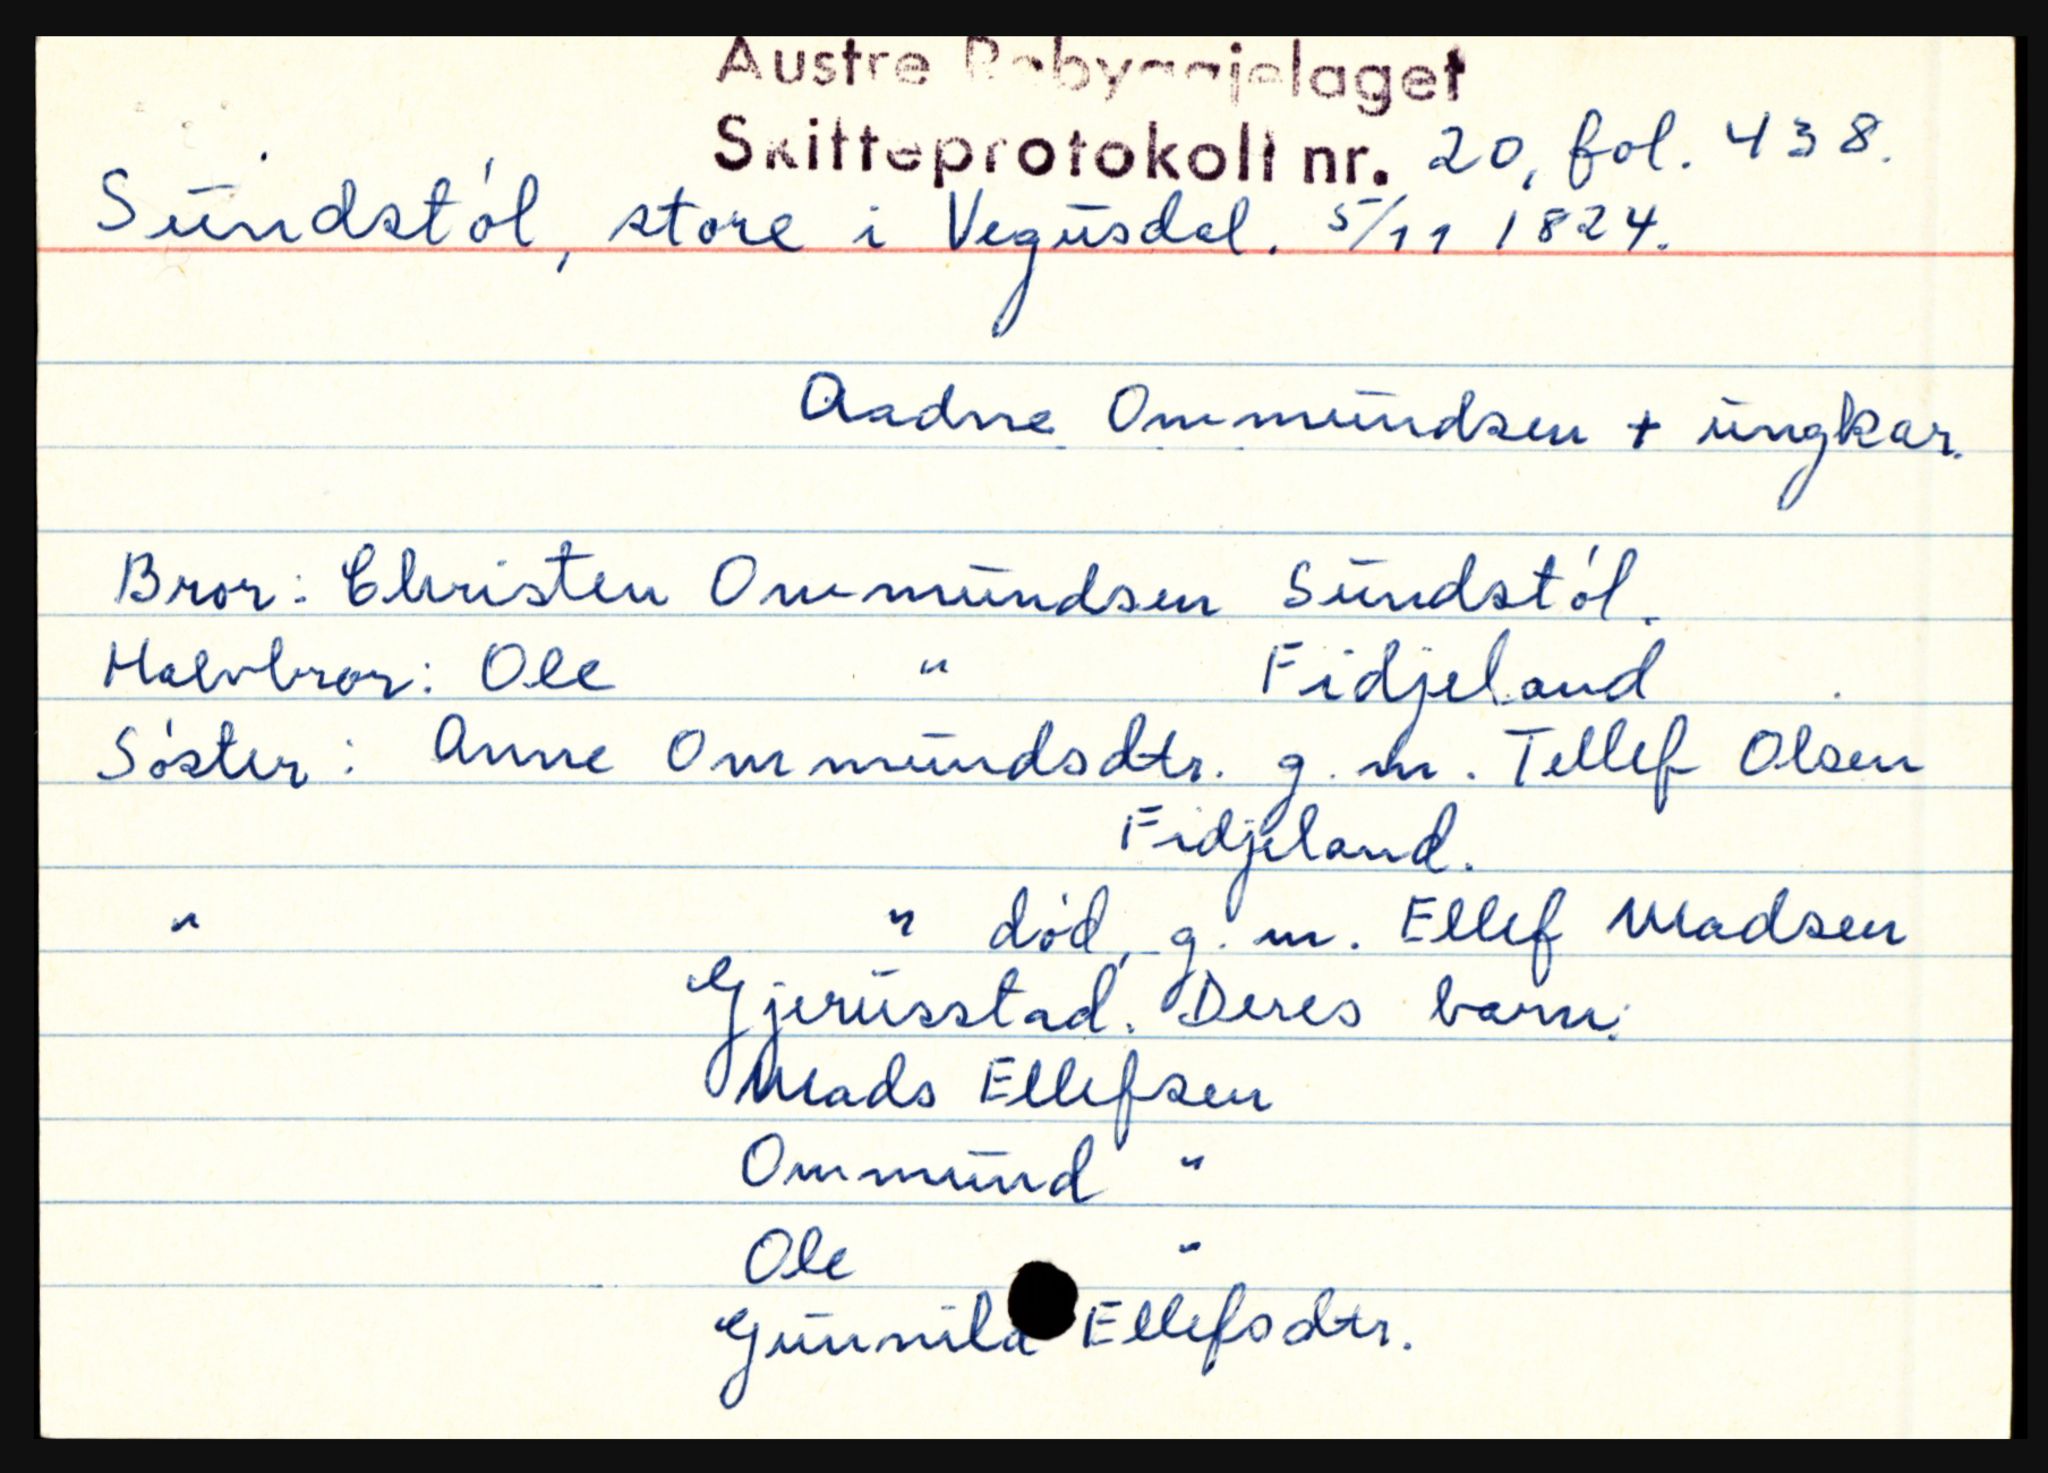 Austre Rabyggjelaget
Skifteprotokoll nr. 20, fol. 438.
Sundstøl, store i Vegusdal. 5/11 1824.
Aadne Ommundsen + ungkar.
Bror: Christen Ommundsen Sundstøl.
Halvbror: Ole " Fidjeland
Søster: Anne Ommundsdtr. g. m. Tellef Olsen
Fidjeland.
" " død, g. m. Ellef Madsen
Gjerusstad. Deres barn:
Mads Ellefsen
Ommund "
Ole "
Gunnild Ellefsdtr.